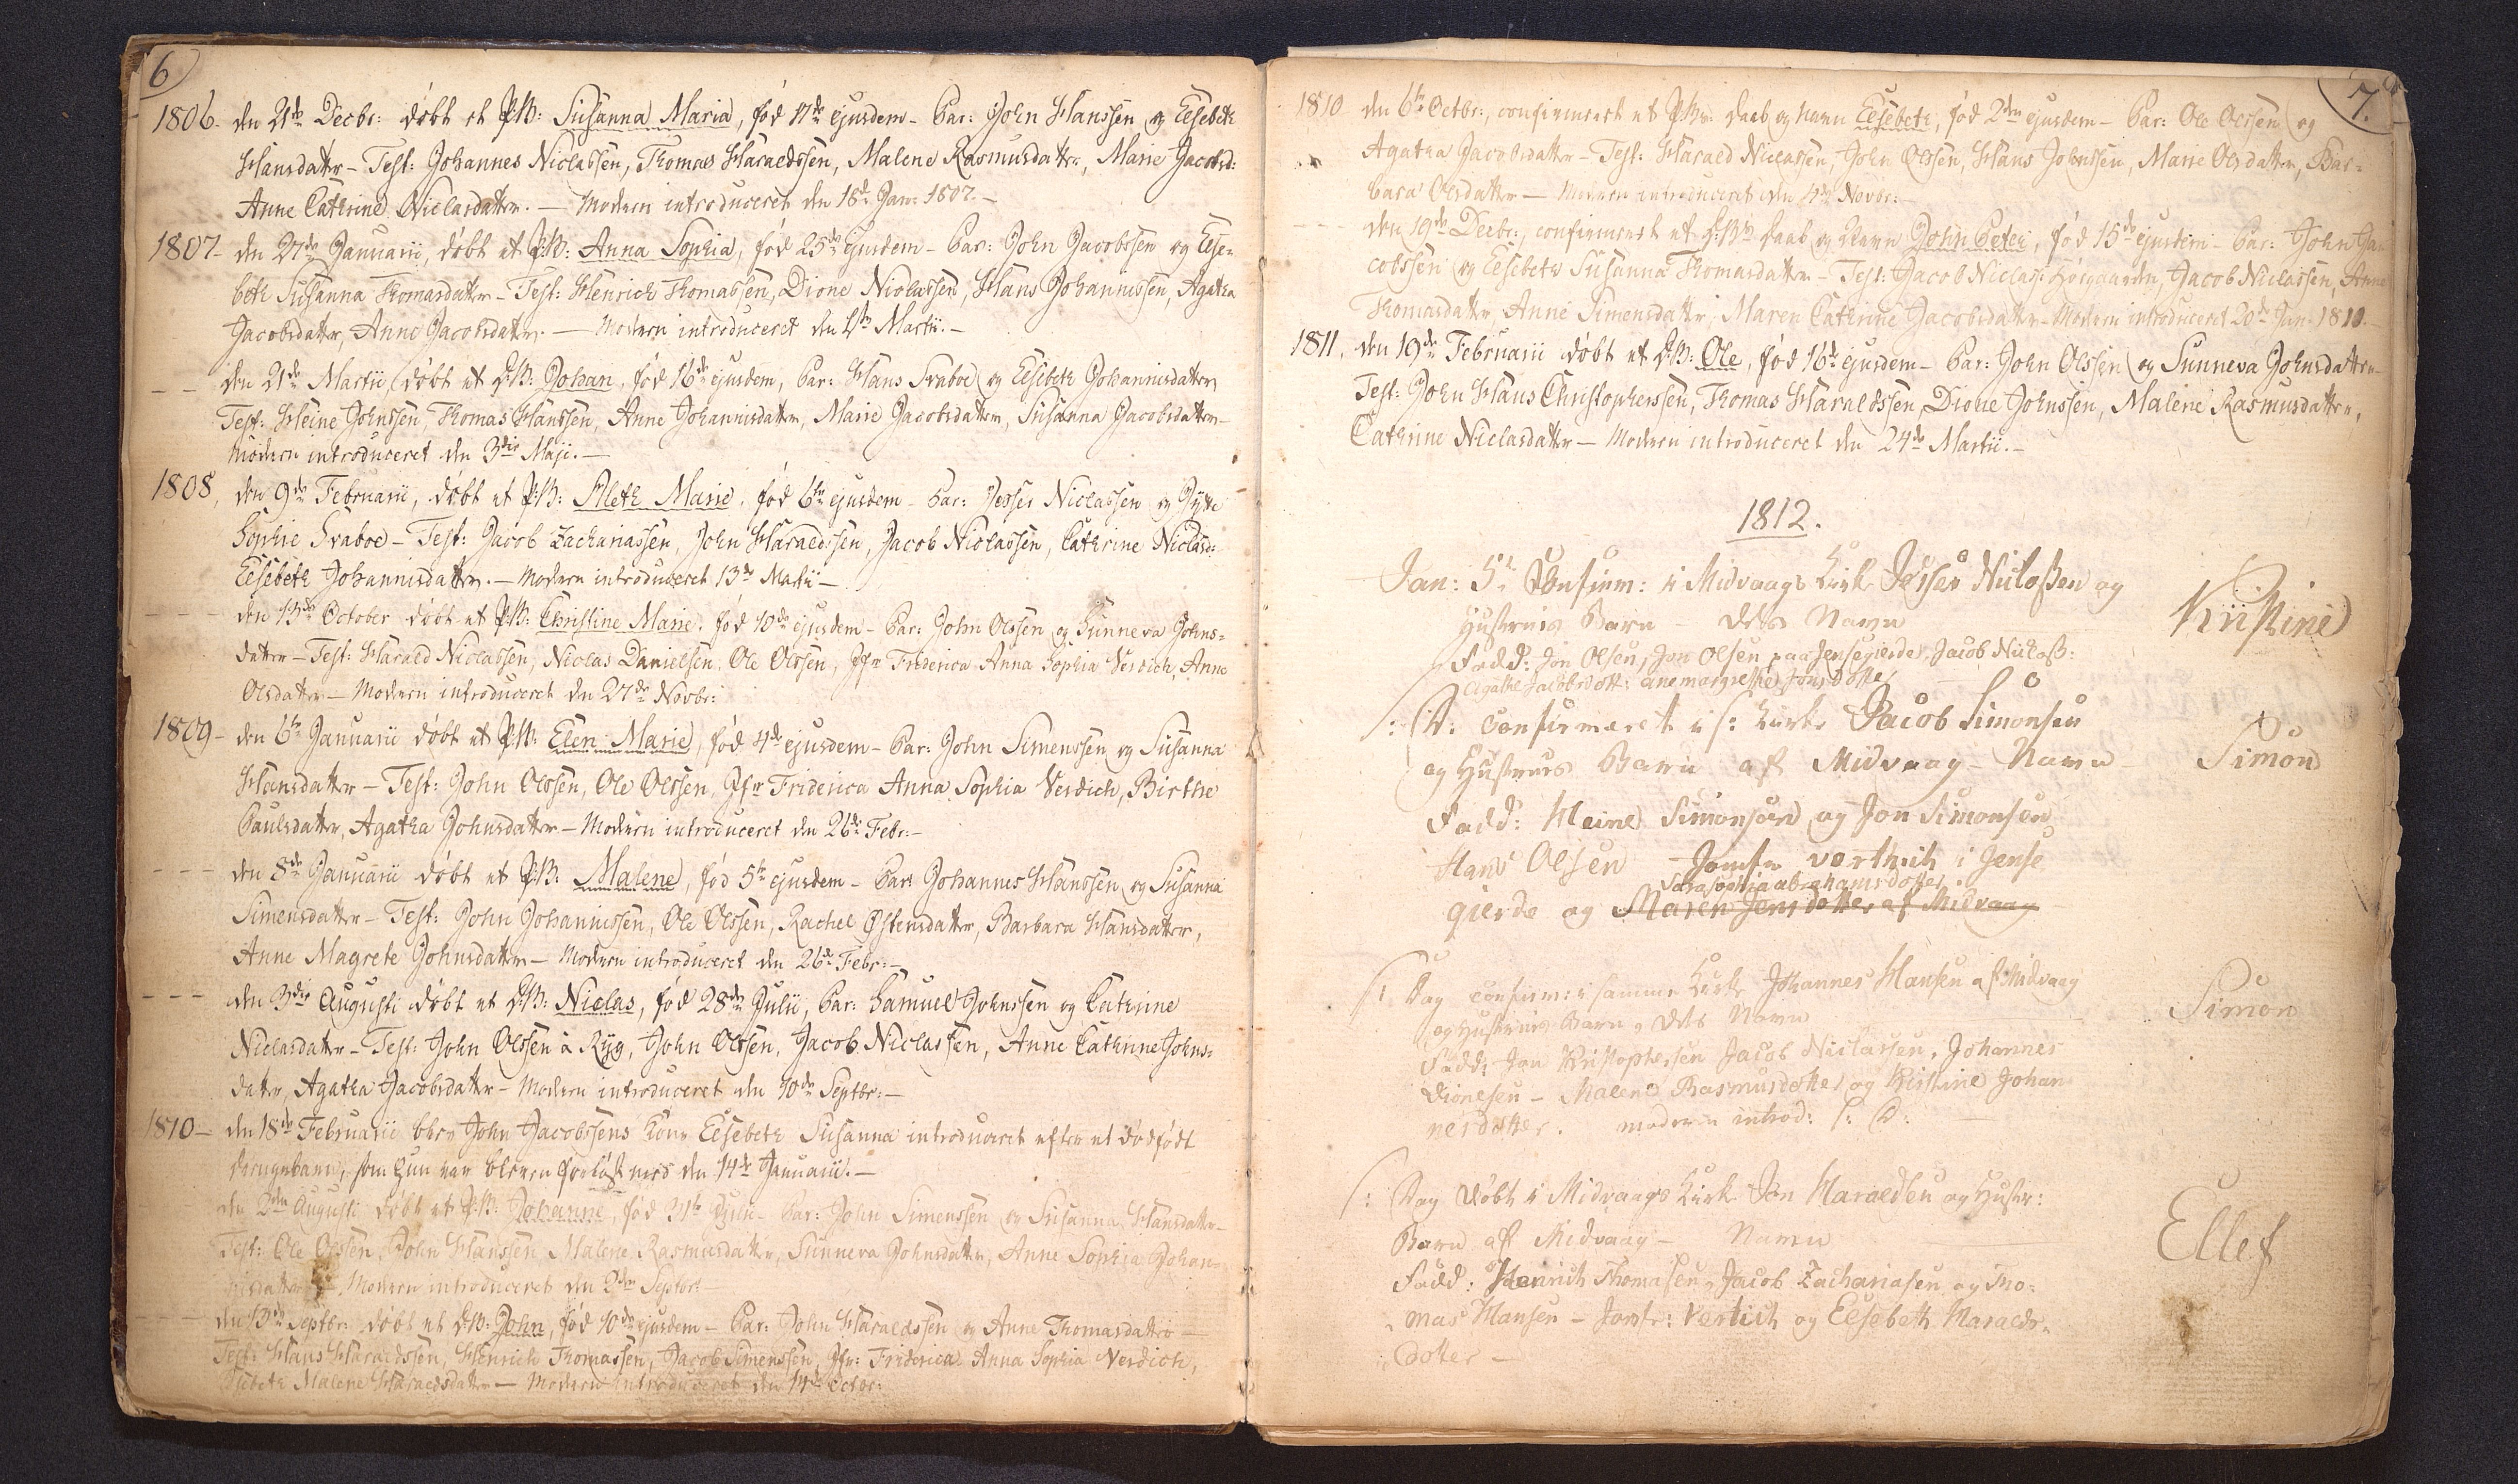 6
1806- den 21de Decbr: døbt et P.B: Susanna Maria, fød 17de ejusdem - Par: John Hanssen og Elsebeth
Hansdattr - Test: Johannes Niclassen, Thomas Haraldssen, Malene Rasmusdattr, Marie Jacobsd:
Anne Cathrine Niclasdattr. - Modren introduceret den 18de Jan: 1807. -
1807- den 27de Januarii, døbt et P.B: Anna Sophia, fød 25de ejusdem - Par: John Jacobssen og Else-
beth Susanna Thomasdattr - Test: Henrich Thomassen, Dione Niclassen, Hans Johannissen, Agatha
Jacobsdattr, Anne Jacobsdattr. - Modren introduceret den Martii. -
- - den 21de Martii døbt et D.B: Johan, fød 16de ejusdem, Par: Hans Svaboe og Elsebeth Johannisdattr
Test: Heine Johnssen, Thomas Hanssen, Anne Johannisdattr, Marie Jacobsdattr, Susanna Jacobsdattr -
Modren introduceret den 3die Maji. -
1808, den 9de Februarii, døbt et P.B: Aleth Marie, fød 6te ejusdem - Par: Jesser Niclassen og Gytte
Sophie Svaboe - Test: Jacob Zachariassen, John Haraldssen, Jacob Niclassen, Cathrine Niclasd:
Elsebeth Johannisdattr. - Modren introduceret 13de Martii -
- - - den 13de October døbt et P.B: Christine Marie, fød 10de ejusdem - Par: John Olssen og Sunneva Johns=
dattr - Test: Harald Niclassen, Niclas Danielsen, Ole Olssen, Jfr Friderica Anna Sophia Verdich, Anne
Olsdattr - Modren introduceret den 27de Novbr:
1809- den 6te Januarii døbt et P.B: Elen Marie, fød 4de ejusdem - Par: John Simenssen og Susanna
Hansdattr - Test: John Olssen, Ole Olssen, Jfr Friderica Anna Sophia Verdich, Birthe
Paulsdattr, Agatha Johnsdattr - Modren introduceret den 26de Febr: -
- - - den 8de Januarii døbt et P.B: Malene, fød 5te ejusdem - Par: Johannes Hanssen og Susanna
Simensdattr - Test: John Johannissen, Ole Olssen, Rachel Østensdattr, Barbara Hansdattr,
Anne Magrete Johnsdattr - Modren introduceret den 26de Febr: -
- - - den 3die Augusti døbt et D.B: Niclas, fød 28de Julii, Par: Samuel Johnssen og Cathrine
Niclasdattr - Test: John Olssen à Ryg, John Olssen, Jacob Niclassen, Anne Cathrine Johns=
dattr, Agatha Jacobsdattr - Modren introduceret den 10de Septbr: -
1810- den 18de Februarii blev John Jacobssens Kone Elsebeth Susanna introduceret efter et dødfødt
Drengebarn, som hun var bleven forløst med den 14de Januarii. -
den 3die Augusti døbt et P.B: Johanne, fød 31te Julii - Par: John Simenssen og Susanna Hansdattr -
Test: Ole Olssen, John Hanssen, Malene Rasmusdattr, Sunneva Johnsdattr, Anne Sophia Johan=
nisdattr - Modren introduceret den 2den Septbr: -
den 13de Septbr: døbt et D.B: John, fød 10de ejusdem - Par: John Haraldssen og Anne Thomasdattr -
Test: Hans Haraldssen, Henrich Thomassen, Jacob Simenssen, Jfr: Friderica Anna Sophia Verdich,
Elsebeth Malene Haraldsdattr - Modren introduceret den 14de Octbr:
7.
1810 den 6te Octbr:, confirmeret et P.Bs Daab og Navn Elsebeth, fød 2den ejusdem - Par: Ole Olssen og
Agatha Jacobsdattr - Test: Harald Niclassen, John Olssen, Hans Johnssen, Marie Olsdattr, Bar=
bara Olsdattr - Modren introduceret den 4de Novbr: -
- - - den 19de Decbr:, confirmeret et D:Bs Daab og Navn John Peter, fød 15de ejusdem - Par: John Ja-
cobssen og Elsebeth Susanna Thomasdattr - Test: Jacob Niclas: Høygaarden, Jacob Niclassen, Anne
Thomasdattr, Anne Simensdattr, Maren Cathrine Jacobsdattr - Modren introduceret 20de Jan: 1810. -
1811, den 19de Februarii døbt et D.B: Ole, fød 16de ejusdem - Par: John Olssen og Sunneva Johnsdattr -
Test: John Hans Christopherssen, Thomas Haraldssen, Dione Johnssen, Malene Rasmusdattr,
Cathrine Niclasdattr - Modren introduceret den 24de Martii. -
1812.
Jan: 5te Confirm: i Midvaags Kirke Jesser Niclaßen og
Hustrues Barn - dets Navn Kristine
Fadd: Jon Olsen, Jon Olsen paa Jensegierde, Jacob Niclaß:
Agathe Jacobsdott: anemargrethe Jonsdotter
s: D: confirmeret i s: Kirke Jacob Simonsen
og Hustrues Barn af Midvaag - Navn - Simon
Fadd: Heine Simonsen og Jon Simonsen
Hans Olsen - Jomfr verthich i Jense
Sara Sophia abrahamsdotter
gierde og Maren Jensdotter af Midvaag
s: Dag confirm: i samme Kirke Johannes Hansen af Midvaag
og Hustrues Barn, dets Navn Simon
Fadd: Jon Kristophersen Jacob Niclassen, Johannes
Dionesen - Malene Rasmusdotter og Kristine Johan
nesdotter. modern introd: s: D: -
s: Dag døbt i Midvaags Kirke Jon Haraldsen og Hustr:
Barn af Midvaag - Navn Ellef
Fadd: Henrich Thomasen, Jacob Zachariasen og Tho=
mas Hansen - Jomfr: Vertich og Elsebeth Haralds=
dotter -